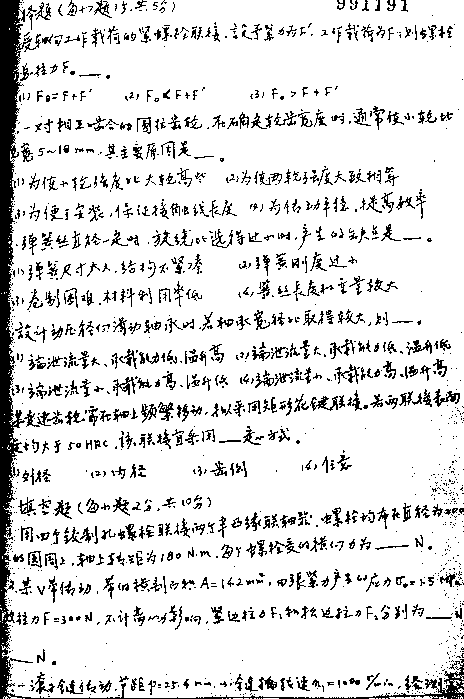 择题（每小题1分，共5分）
991191
受轴向工作载荷的紧螺栓联接，设予紧力为F'，工作载荷为F，则螺栓
总拉力F₀___。
(1) F₀=F+F' (2) F₀<F+F' (3) F₀>F+F'
一对相互啮合的圆柱齿轮，在确定轮齿宽度时，通常使小轮比
宽5~10mm，其主要原因是___。
(1)为使小轮强度比大轮高些 (2)为使两轮强度大致相等
(3)为便于安装，保证接触线长度 (4)为传动平稳，提高效率
弹簧丝直径一定时，旋绕比选得过小时，产生的缺点是___。
(1)弹簧尺寸大大，结构不紧凑 (2)弹簧刚度过小
(3)卷制困难，材料利用率低 (4)簧丝长度和重量较大
设计动压径向滑动轴承时，若轴承宽径比取得较大，则___。
(1)端泄流量大、承载能力低、温升高 (2)端泄流量大、承载能力低、温升低
(3)端泄流量小、承载能力高、温升低 (4)端泄流量小、承载能力高、温升高
某变速齿轮需在轴上频繁移动，拟采用矩形花键联接。若两联接表面
硬度均大于50HRC，该联接宜采用___定心方式。
(1)外径 (2)内径 (3)齿侧 (4)任意
填空题（每小题2分，共10分）
用四个铰制孔螺栓联接两个半凸缘联轴器，螺栓均布在直径为200
的圆周上，轴上转距为180N.m，每个螺栓受的横向力为___N。
某V带传动，带的横剖面积A=142mm²，由张紧力产生的应力σ₀=1.5MPa
效拉力F=300N，不计离心力影响，紧边拉力F₁和松边拉力F₂分别为___N
___N。
一滚子链传动，节距p=25.4mm，小链轮转速n₁=1000 r/min，经测